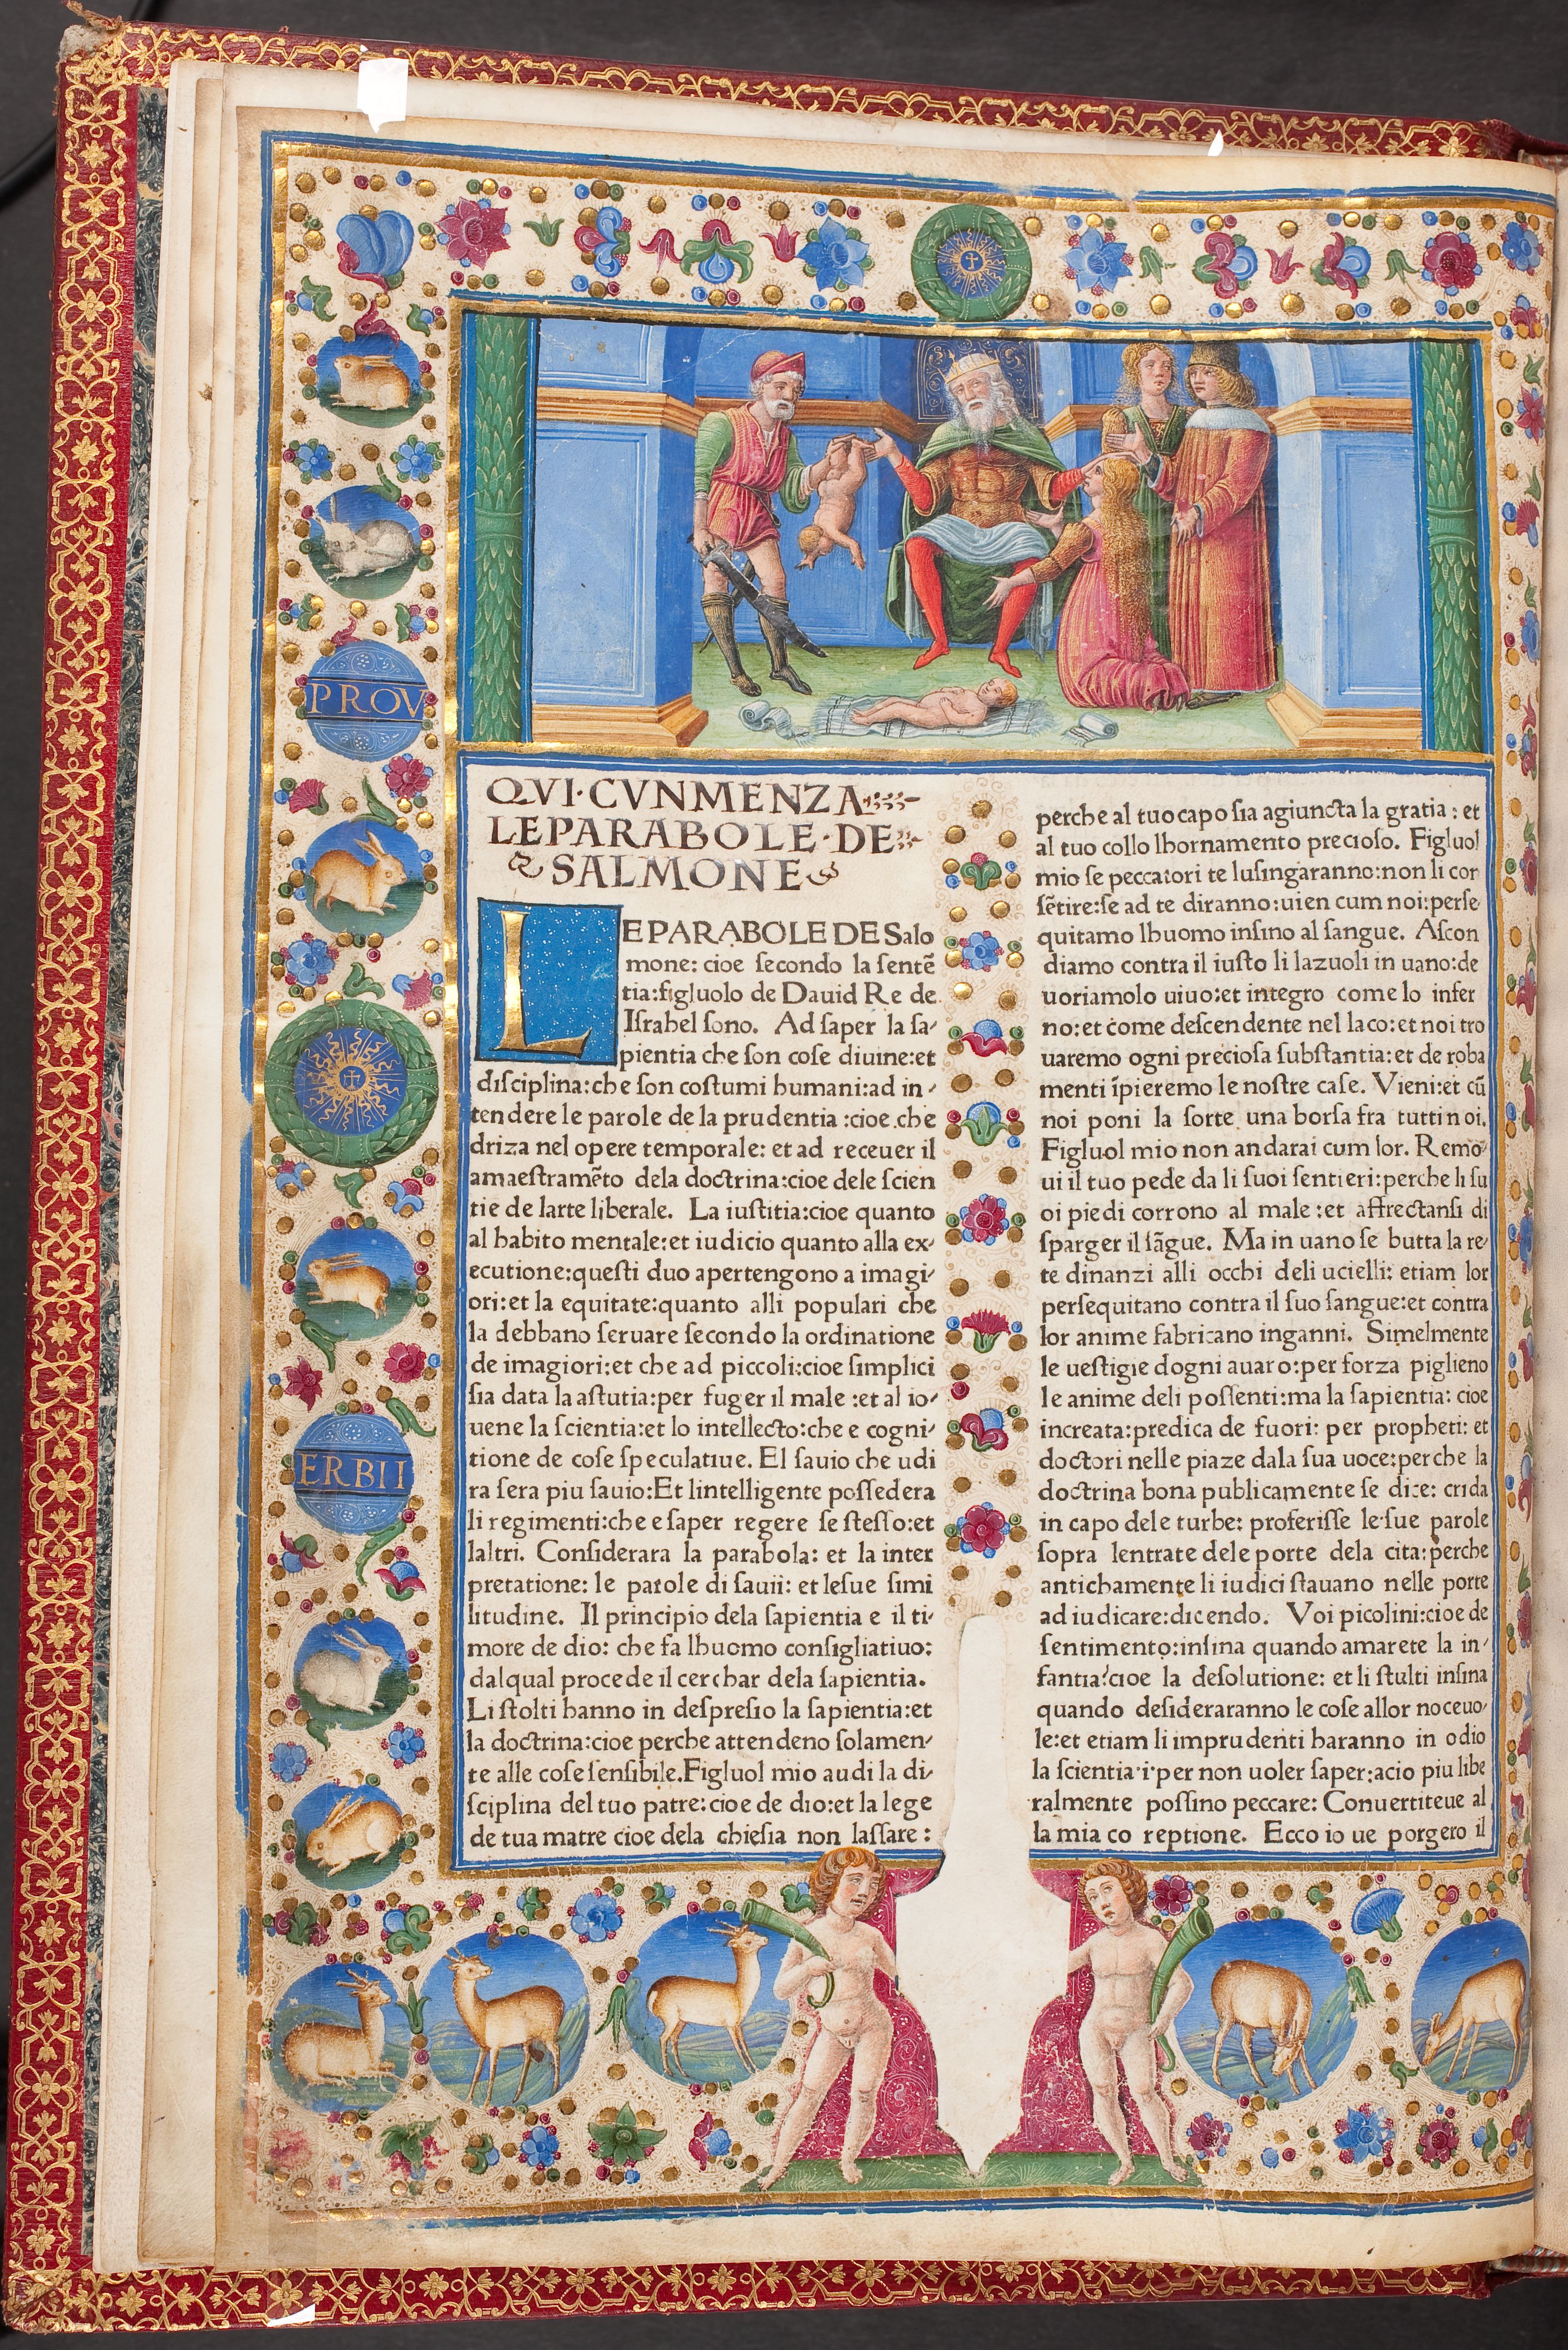 PROV
ERBII
QVI·CVNMENZA
LE PARABOLE·DE
SALMONE
LE PARABOLE DE Salo
mone: cioe ſecondo la ſentẽ
tia:figluolo de Dauid Re de
Iſrahel ſono. Ad ſaper la ſa/
pientia che ſon coſe diuine:et
diſciplina:che ſon coſtumi humani:ad in/
tendere le parole de la prudentia :cioe che
driza nel opere temporale: et ad receuer il
amaeſtramẽto dela doctrina:cioe dele ſcien
tie de larte liberale. La iuſtitia:cioe quanto
al habito mentale:et iudicio quanto alla ex/
ecutione:queſti duo apertengono a imagi/
ori:et la equitate:quanto alli populari che
la debbano ſeruare ſecondo la ordinatione
de imagiori:et che ad piccoli:cioe ſimplici
ſia data la aſtutia:per fuger il male :et al io/
uene la ſcientia:et lo intellecto:che e cogni/
tione de coſe ſpeculatiue. El ſauio che udi
ra ſera piu ſauio:Et lintelligente poſſedera
li regimenti:che e ſaper regere ſe ſteſſo:et
laltri. Conſiderara la parabola: et la inter
pretatione: le parole di ſauii: et leſue ſimi
litudine. Il principio dela ſapientia e il ti/
more de dio: che fa lhuomo conſigliatiuo:
dalqual procede il cerchar dela ſapientia.
Li ſtolti hanno in deſpreſio la ſapientia:et
la doctrina:cioe perche attendeno ſolamen/
te alle coſe ſenſibile.Figluol mio audi la di/
ſciplina del tuo patre:cioe de dio:et la lege
de tua matre cioe dela chieſia non laſſare :
perche al tuo capo ſia agiuncta la gratia : et
al tuo collo lhornamento precioſo. Figluol
mio ſe peccatori te luſingaranno:non li con
ſẽtire:ſe ad te diranno:uien cum noi:perſe
quitamo lhuomo inſino al ſangue. Aſcon
diamo contra il iuſto li lazuoli in uano:de
uoriamolo uiuo:et integro come lo infer
no:et come deſcendente nel laco:et noi tro
uaremo ogni precioſa ſubſtantia:et de roba
menti ĩpieremo le noſtre caſe. Vieni:et cũ
noi poni la ſorte una borſa fra tutti noi.
Figluol mio non andarai cum lor. Remo/
ui il tuo pede da li ſuoi ſentieri:perche li ſu
oi piedi corrono al male :et affrectanſi di
ſparger il ſãgue. Ma in uano ſe butta la re/
te dinanzi alli occhi deli ucielli: etiam lor
perſequitano contra il ſuo ſangue:et contra
lor anime fabricano inganni. Simelmente
le ueſtigie dogni auaro:per forza piglieno
le anime deli poſſenti:ma la ſapientia: cioe
increata:predica de fuori: per propheti: et
doctori nelle piaze dala ſua uoce:perche la
doctrina bona publicamente ſe dice: crida
in capo dele turbe: proferiſſe le ſue parole
ſopra lentrate dele porte dela cita:perche
antichamente li iudici ſtauano nelle porte
ad iudicare:dicendo. Voi picolini:cioe de
ſentimento:inſina quando amarete la in/
fantia?cioe la deſolutione: et li ſtulti inſina
quando deſideraranno le coſe allor noceuo/
le:et etiam li imprudenti haranno in odio
la ſcientia·i·per non uoler ſaper:acio piu libe
ralmente poſſino peccare: Conuertiteue al
la mia co reptione. Ecco io ue porgero il